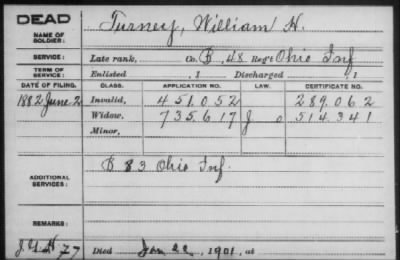 DEAD
NAME OF SOLDIER: Turney, William H.
SERVICE: Late rank, Co. B, 48 Reg't Ohio Inf
TERM OF SERVICE: Enlisted , 1 Discharged , 1
DATE OF FILING. CLASS. APPLICATION NO. LAW. CERTIFICATE NO.
1882 June 2 Invalid, 451.052 289.062
Widow, 735617 J o 514.341
Minor,
ADDITIONAL SERVICES: B 83 Ohio Inf.
REMARKS:
77 Died Jan 22, 1901, at